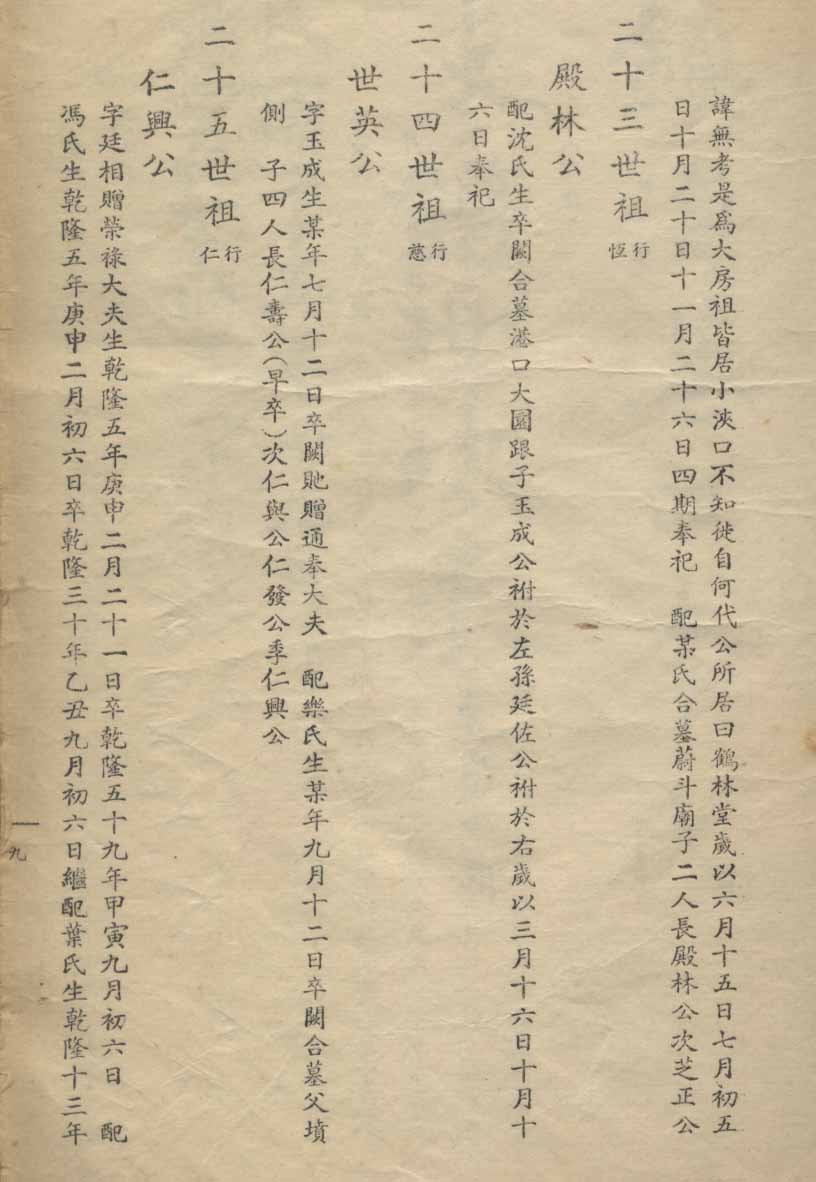 諱無考是爲大房祖皆居小浹口不知徙自何代公所居曰鶴林堂歲以六月十五日七月初五
日十月二十日十一月二十六日四期奉祀　配某氏合墓蔚斗廟子二人長殿林公次芝正公
二十三世祖 行恆
殿林公
配沈氏生卒闕合墓港口大園跟子玉成公祔於左孫廷佐公祔於右歲以三月十六日十月十
六日奉祀
二十四世祖 行慈
世英公
字玉成生某年七月十二日卒闕貤贈通奉大夫　配樂氏生某年九月十二日卒闕合墓父墳
側　子四人長仁壽公（早卒）次仁與公仁發公季仁興公
二十五世祖 行仁
仁興公
字廷相贈榮祿大夫生乾隆五年庚申二月二十一日卒乾隆五十九年甲寅九月初六日　配
馮氏生乾隆五年庚申二月初六日卒乾隆三十年乙丑九月初六日繼配葉氏生乾隆十三年
一九